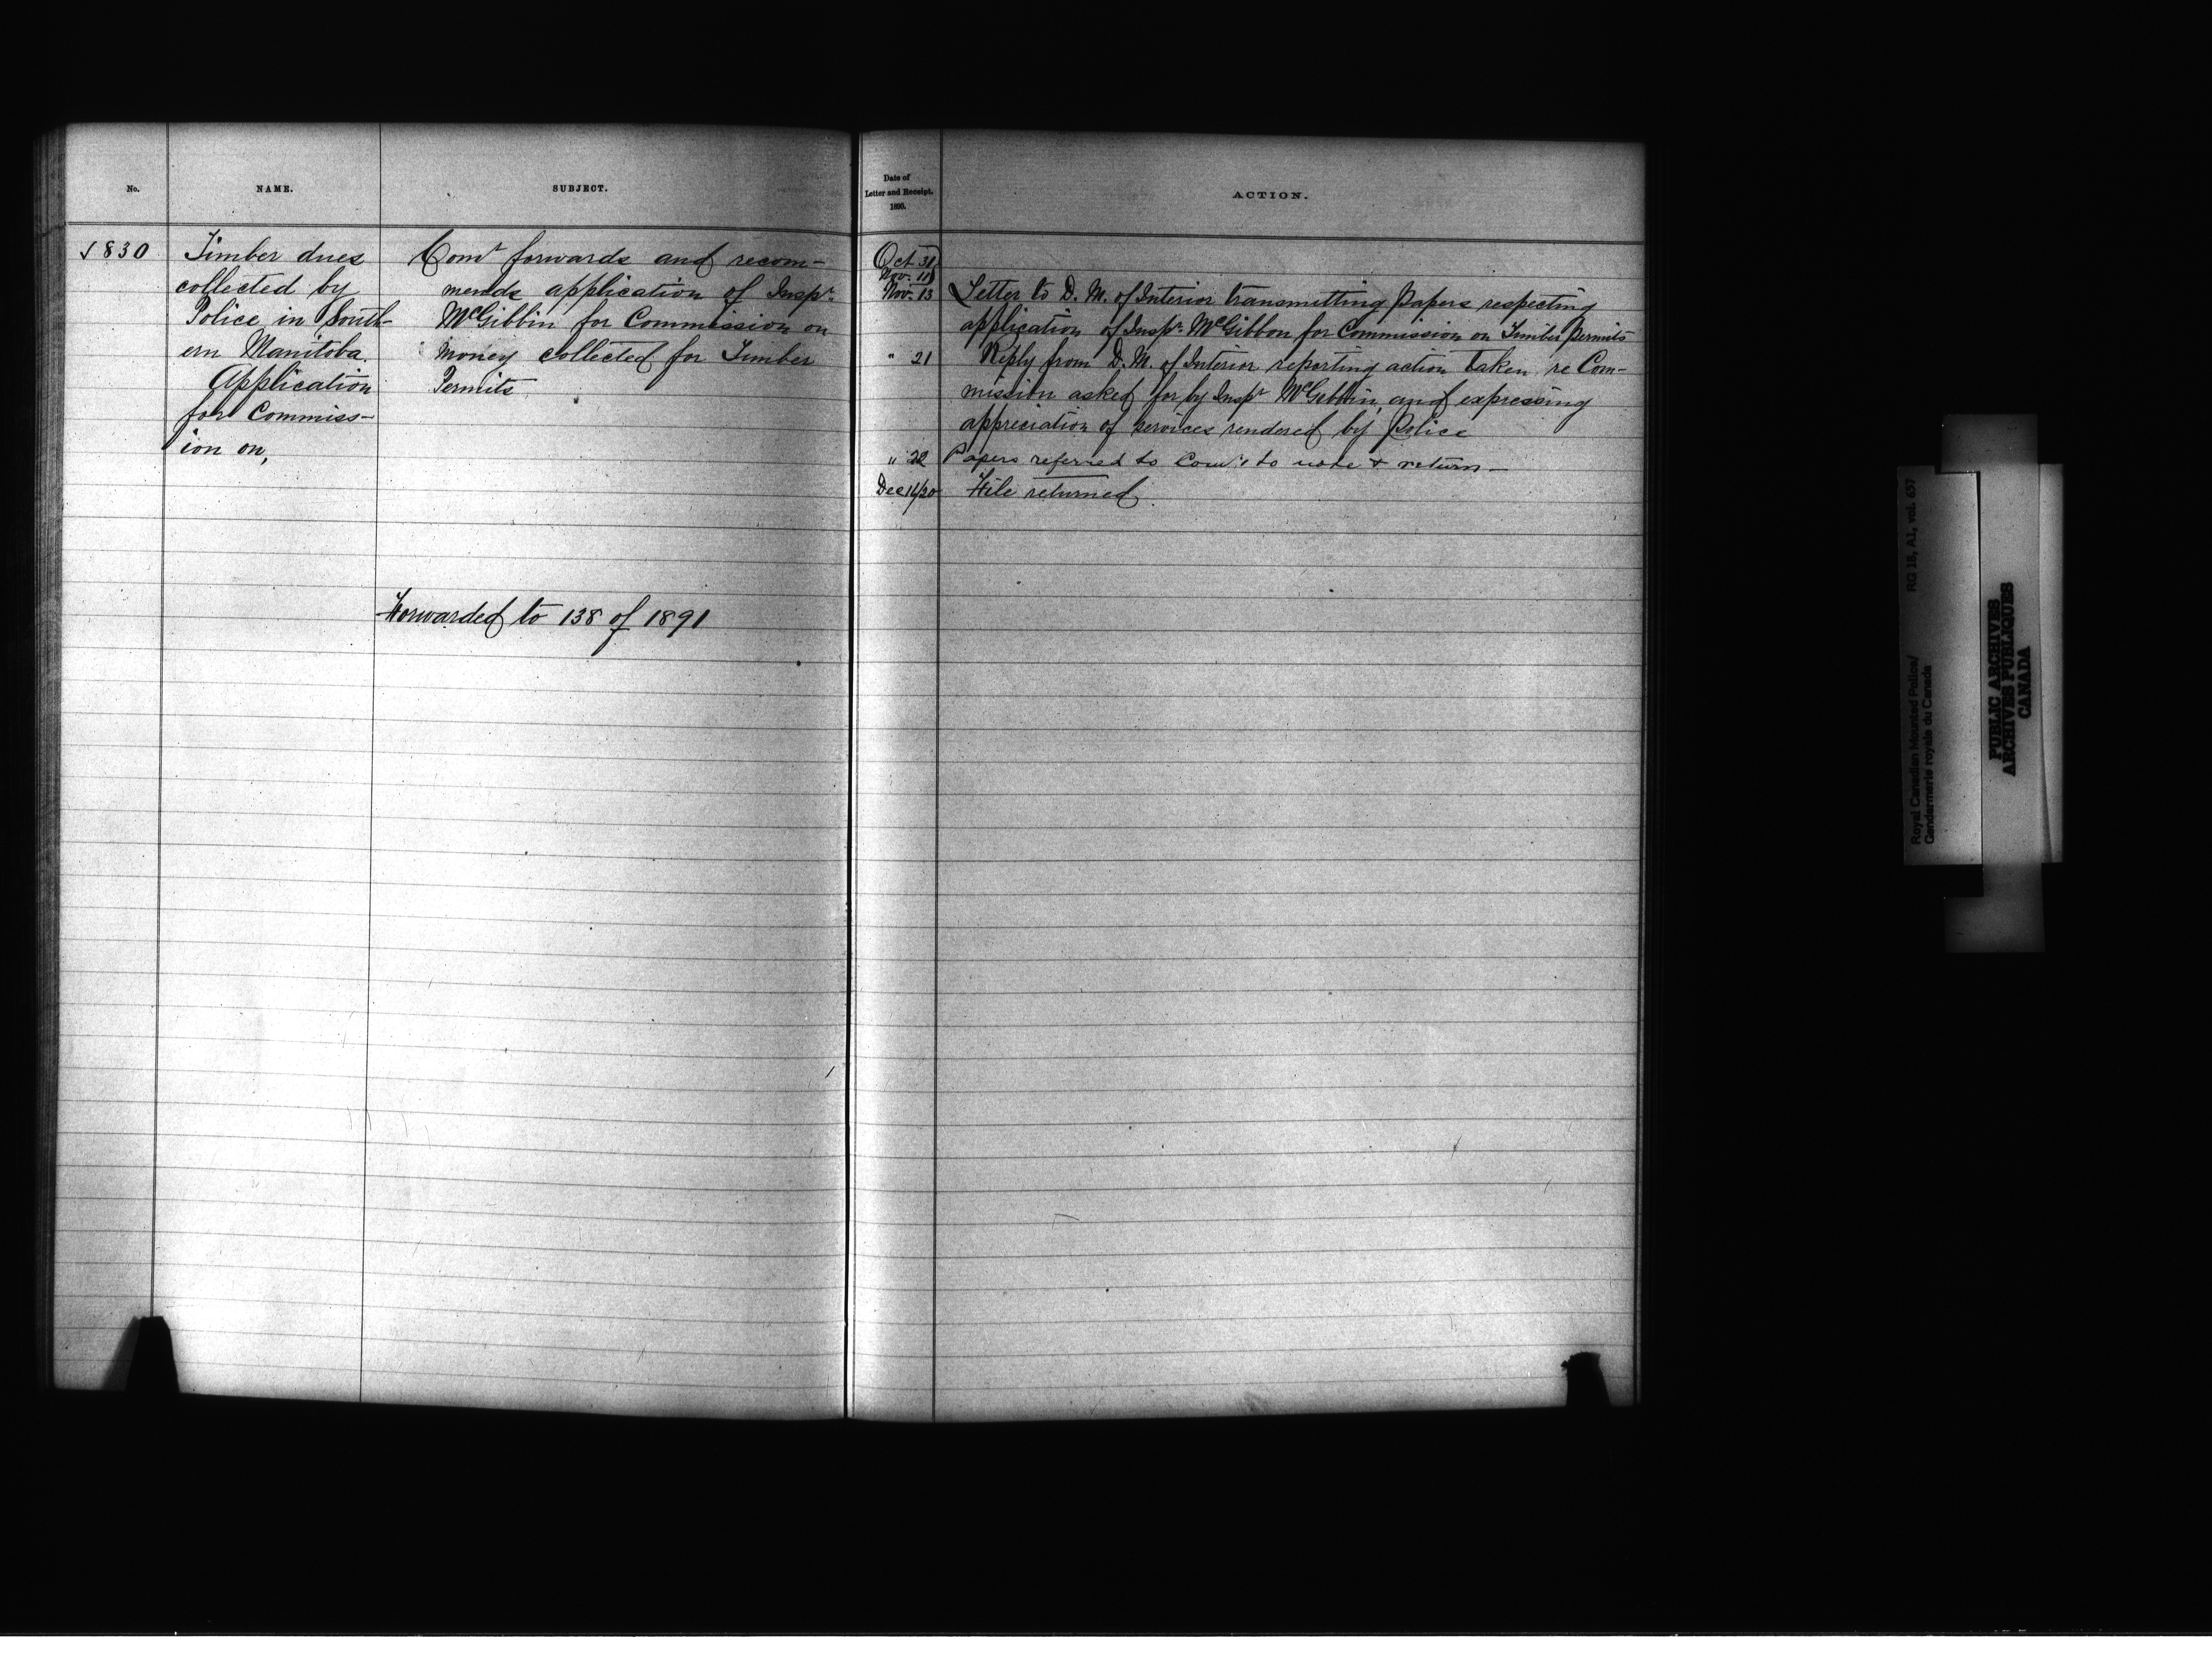 No.
NAME.
SUBJECT.
√830
Timber dues
collected by
Police in South-
ern Manitoba.
Application
for Commiss-
ion on,
Comr forwards and recom-
mends application of Inspr.
McGibbin for Commission on
money collected for Timber
Permits
Forwarded to 138 of 1891
Date of
Letter and Receipt.
1890.
ACTION.
Oct 31
Nov. 11
Nov. 13 Letter to D. M. of Interior transmitting Papers respecting
application of Inspr. McGibbon for Commission on Timber Permits
" 21 Reply from D. M. of Interior reporting action taken re Com-
mission asked for by Inspr McGibbin, and expressing
appreciation of services rendered by Police
" 22 Papers referred to Comr to note & return—
Dec 16/20 File returned.
Royal Canadian Mounted Police/
Gendarmerie royale du Canada
RG 18, A1, vol. 657
PUBLIC ARCHIVES
ARCHIVES PUBLIQUES
CANADA